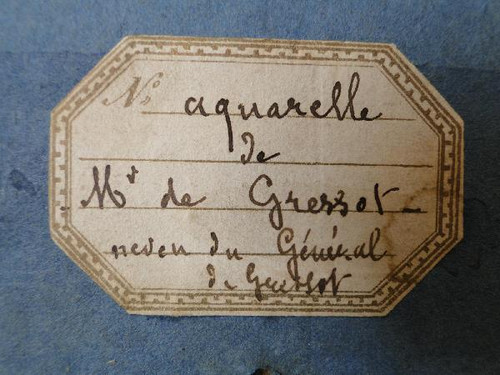 No aquarelle
de
Mr de Gressot
neveu du Général
de Gressot